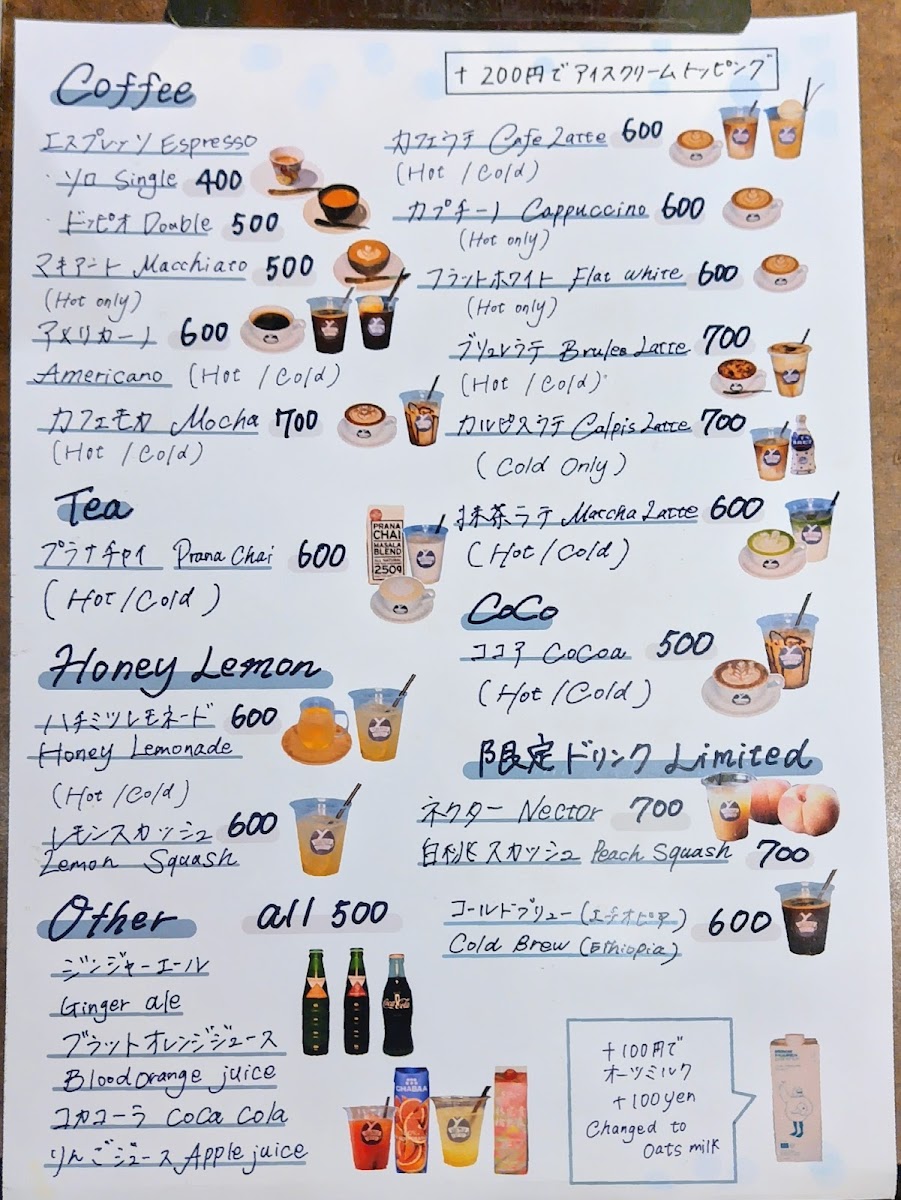 Coffee
+200円でアイスクリームトッピング
エスプレッソ Espresso
・ソロ Single 400
・ドッピオ Double 500
マキアート Macchiato 500
(Hot only)
アメリカーノ 600
Americano (Hot / Cold)
カフェモカ Mocha 700
(Hot / Cold)
カフェラテ Cafe Latte 600
(Hot / Cold)
カプチーノ Cappuccino 600
(Hot only)
フラットホワイト Flat white 600
(Hot only)
ブリュレラテ Brulee Latte 700
(Hot / Cold)
カルピスラテ Calpis Latte 700
(Cold Only)
抹茶ラテ Maccha Latte 600
(Hot / Cold)
Tea
プラナチャイ Prana Chai 600
(Hot / Cold)
PRANA
CHAI
MASALA
BLEND
250g
CoCo
ココア CoCoa 500
(Hot / Cold)
Honey Lemon
ハチミツレモネード 600
Honey Lemonade
(Hot / Cold)
レモンスカッシュ 600
Lemon Squash
限定ドリンク Limited
ネクター Nector 700
白桃スカッシュ Peach Squash 700
コールドブリュー (エチオピア) 600
Cold Brew (Ethiopia)
Other all 500
ジンジャーエール
Ginger ale
ブラッドオレンジジュース
Blood orange juice
コカコーラ CoCa Cola
りんごジュース Apple juice
Coca-Cola
CHABAA
+100円で
オーツミルク
+100yen
Changed to
Oats milk